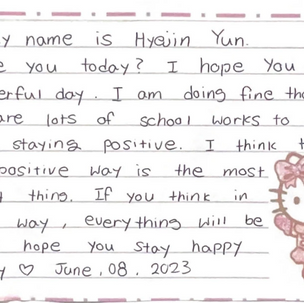 y name is Hyejin Yun.
e you today? I hope you
erful day. I am doing fine tho
are lots of school works to
staying positive. I think t
positive way is the most
thing. If you think in
way, everything will be
hope you stay happy
y ♡ June, 08, 2023